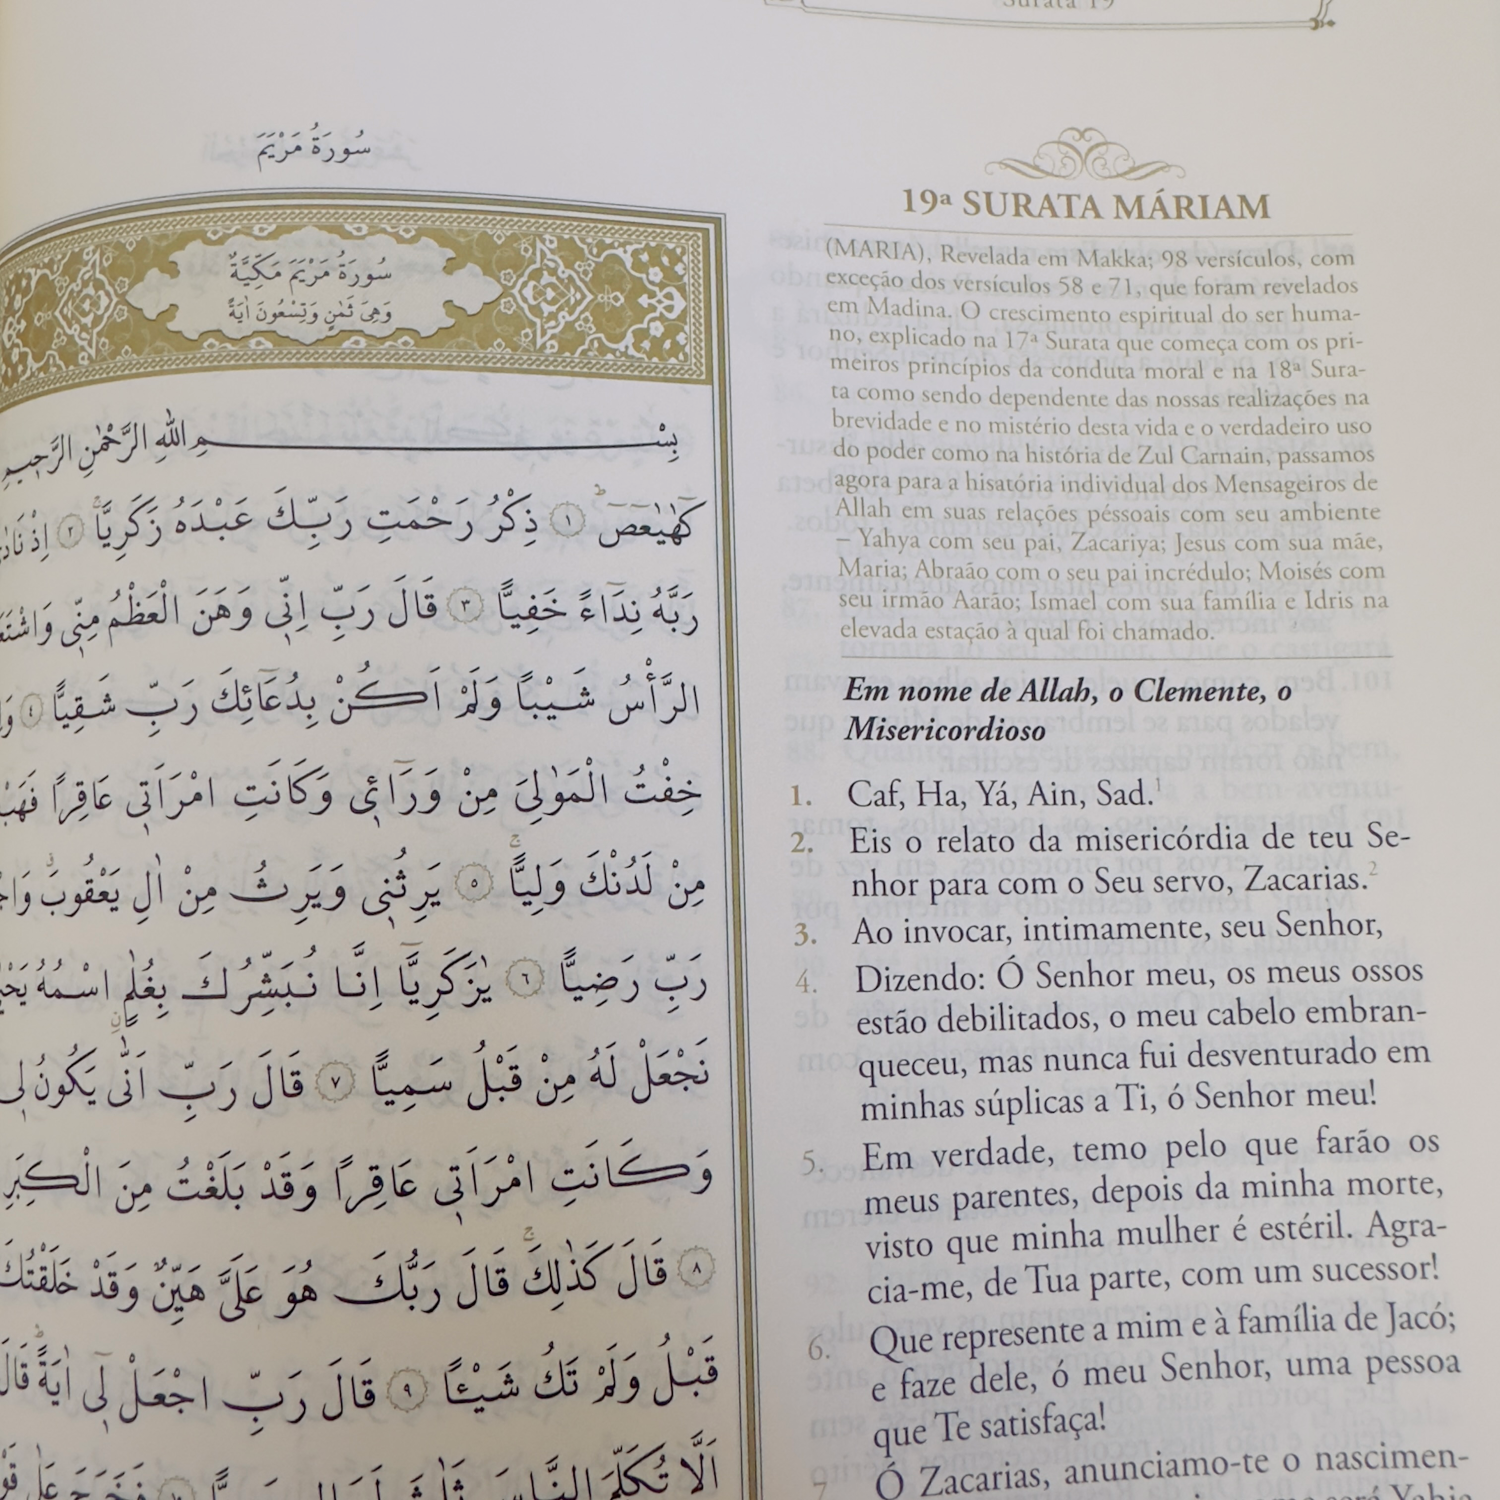 Surata 19
سُورَةُ مَرْيَمَ
سُورَةُ مَرْيَمَ مَكِّيَّةٌ
وَهِيَ ثَمٰنٍ وَتِسْعُونَ اٰيَةً
بِسْمِ اللّٰهِ الرَّحْمٰنِ الرَّحٖيمِ
كٓهٰيٰعٓصٓ ۚ ﴿١﴾ ذِكْرُ رَحْمَتِ رَبِّكَ عَبْدَهُ زَكَرِيَّاۚ ﴿٢﴾ اِذْ نَادٰى
رَبَّهُ نِدَٓاءً خَفِيًّا ﴿٣﴾ قَالَ رَبِّ اِنّٖي وَهَنَ الْعَظْمُ مِنّٖي وَاشْتَعَلَ
الرَّأْسُ شَيْبًا وَلَمْ اَكُنْ بِدُعَٓائِكَ رَبِّ شَقِيًّا ﴿٤﴾
خِفْتُ الْمَوَالِيَ مِنْ وَرَٓائٖي وَكَانَتِ امْرَاَتٖي عَاقِرًا فَهَبْ
مِنْ لَدُنْكَ وَلِيًّاۙ ﴿٥﴾ يَرِثُنٖي وَيَرِثُ مِنْ اٰلِ يَعْقُوبَۗ
رَبِّ رَضِيًّا ﴿٦﴾ يٰزَكَرِيَّٓا اِنَّا نُبَشِّرُكَ بِغُلَامٍۨ اسْمُهُ يَحْيٰى
نَجْعَلْ لَهُ مِنْ قَبْلُ سَمِيًّا ﴿٧﴾ قَالَ رَبِّ اَنّٰى يَكُونُ لٖي
وَكَانَتِ امْرَاَتٖي عَاقِرًا وَقَدْ بَلَغْتُ مِنَ الْكِبَرِ
﴿٨﴾ قَالَ كَذٰلِكَۚ قَالَ رَبُّكَ هُوَ عَلَيَّ هَيِّنٌ وَقَدْ خَلَقْتُكَ
قَبْلُ وَلَمْ تَكُ شَيْـًٔا ﴿٩﴾ قَالَ رَبِّ اجْعَلْ لٖٓي اٰيَةًۜ قَالَ
اَلَّا تُكَلِّمَ النَّاسَ
19ª SURATA MÁRIAM
(MARIA), Revelada em Makka; 98 versículos, com
exceção dos versículos 58 e 71, que foram revelados
em Madina. O crescimento espiritual do ser huma-
no, explicado na 17ª Surata que começa com os pri-
meiros princípios da conduta moral e na 18ª Sura-
ta como sendo dependente das nossas realizações na
brevidade e no mistério desta vida e o verdadeiro uso
do poder como na história de Zul Carnain, passamos
agora para a hisatória individual dos Mensageiros de
Allah em suas relações péssoais com seu ambiente
– Yahya com seu pai, Zacariya; Jesus com sua mãe,
Maria; Abraão com o seu pai incrédulo; Moisés com
seu irmão Aarão; Ismael com sua família e Idris na
elevada estação à qual foi chamado.
Em nome de Allah, o Clemente, o
Misericordioso
1. Caf, Ha, Yá, Ain, Sad.¹
2. Eis o relato da misericórdia de teu Se-
nhor para com o Seu servo, Zacarias.²
3. Ao invocar, intimamente, seu Senhor,
4. Dizendo: Ó Senhor meu, os meus ossos
estão debilitados, o meu cabelo embran-
queceu, mas nunca fui desventurado em
minhas súplicas a Ti, ó Senhor meu!
5. Em verdade, temo pelo que farão os
meus parentes, depois da minha morte,
visto que minha mulher é estéril. Agra-
cia-me, de Tua parte, com um sucessor!
6. Que represente a mim e à família de Jacó;
e faze dele, ó meu Senhor, uma pessoa
que Te satisfaça!
7. Ó Zacarias, anunciamo-te o nascimen-